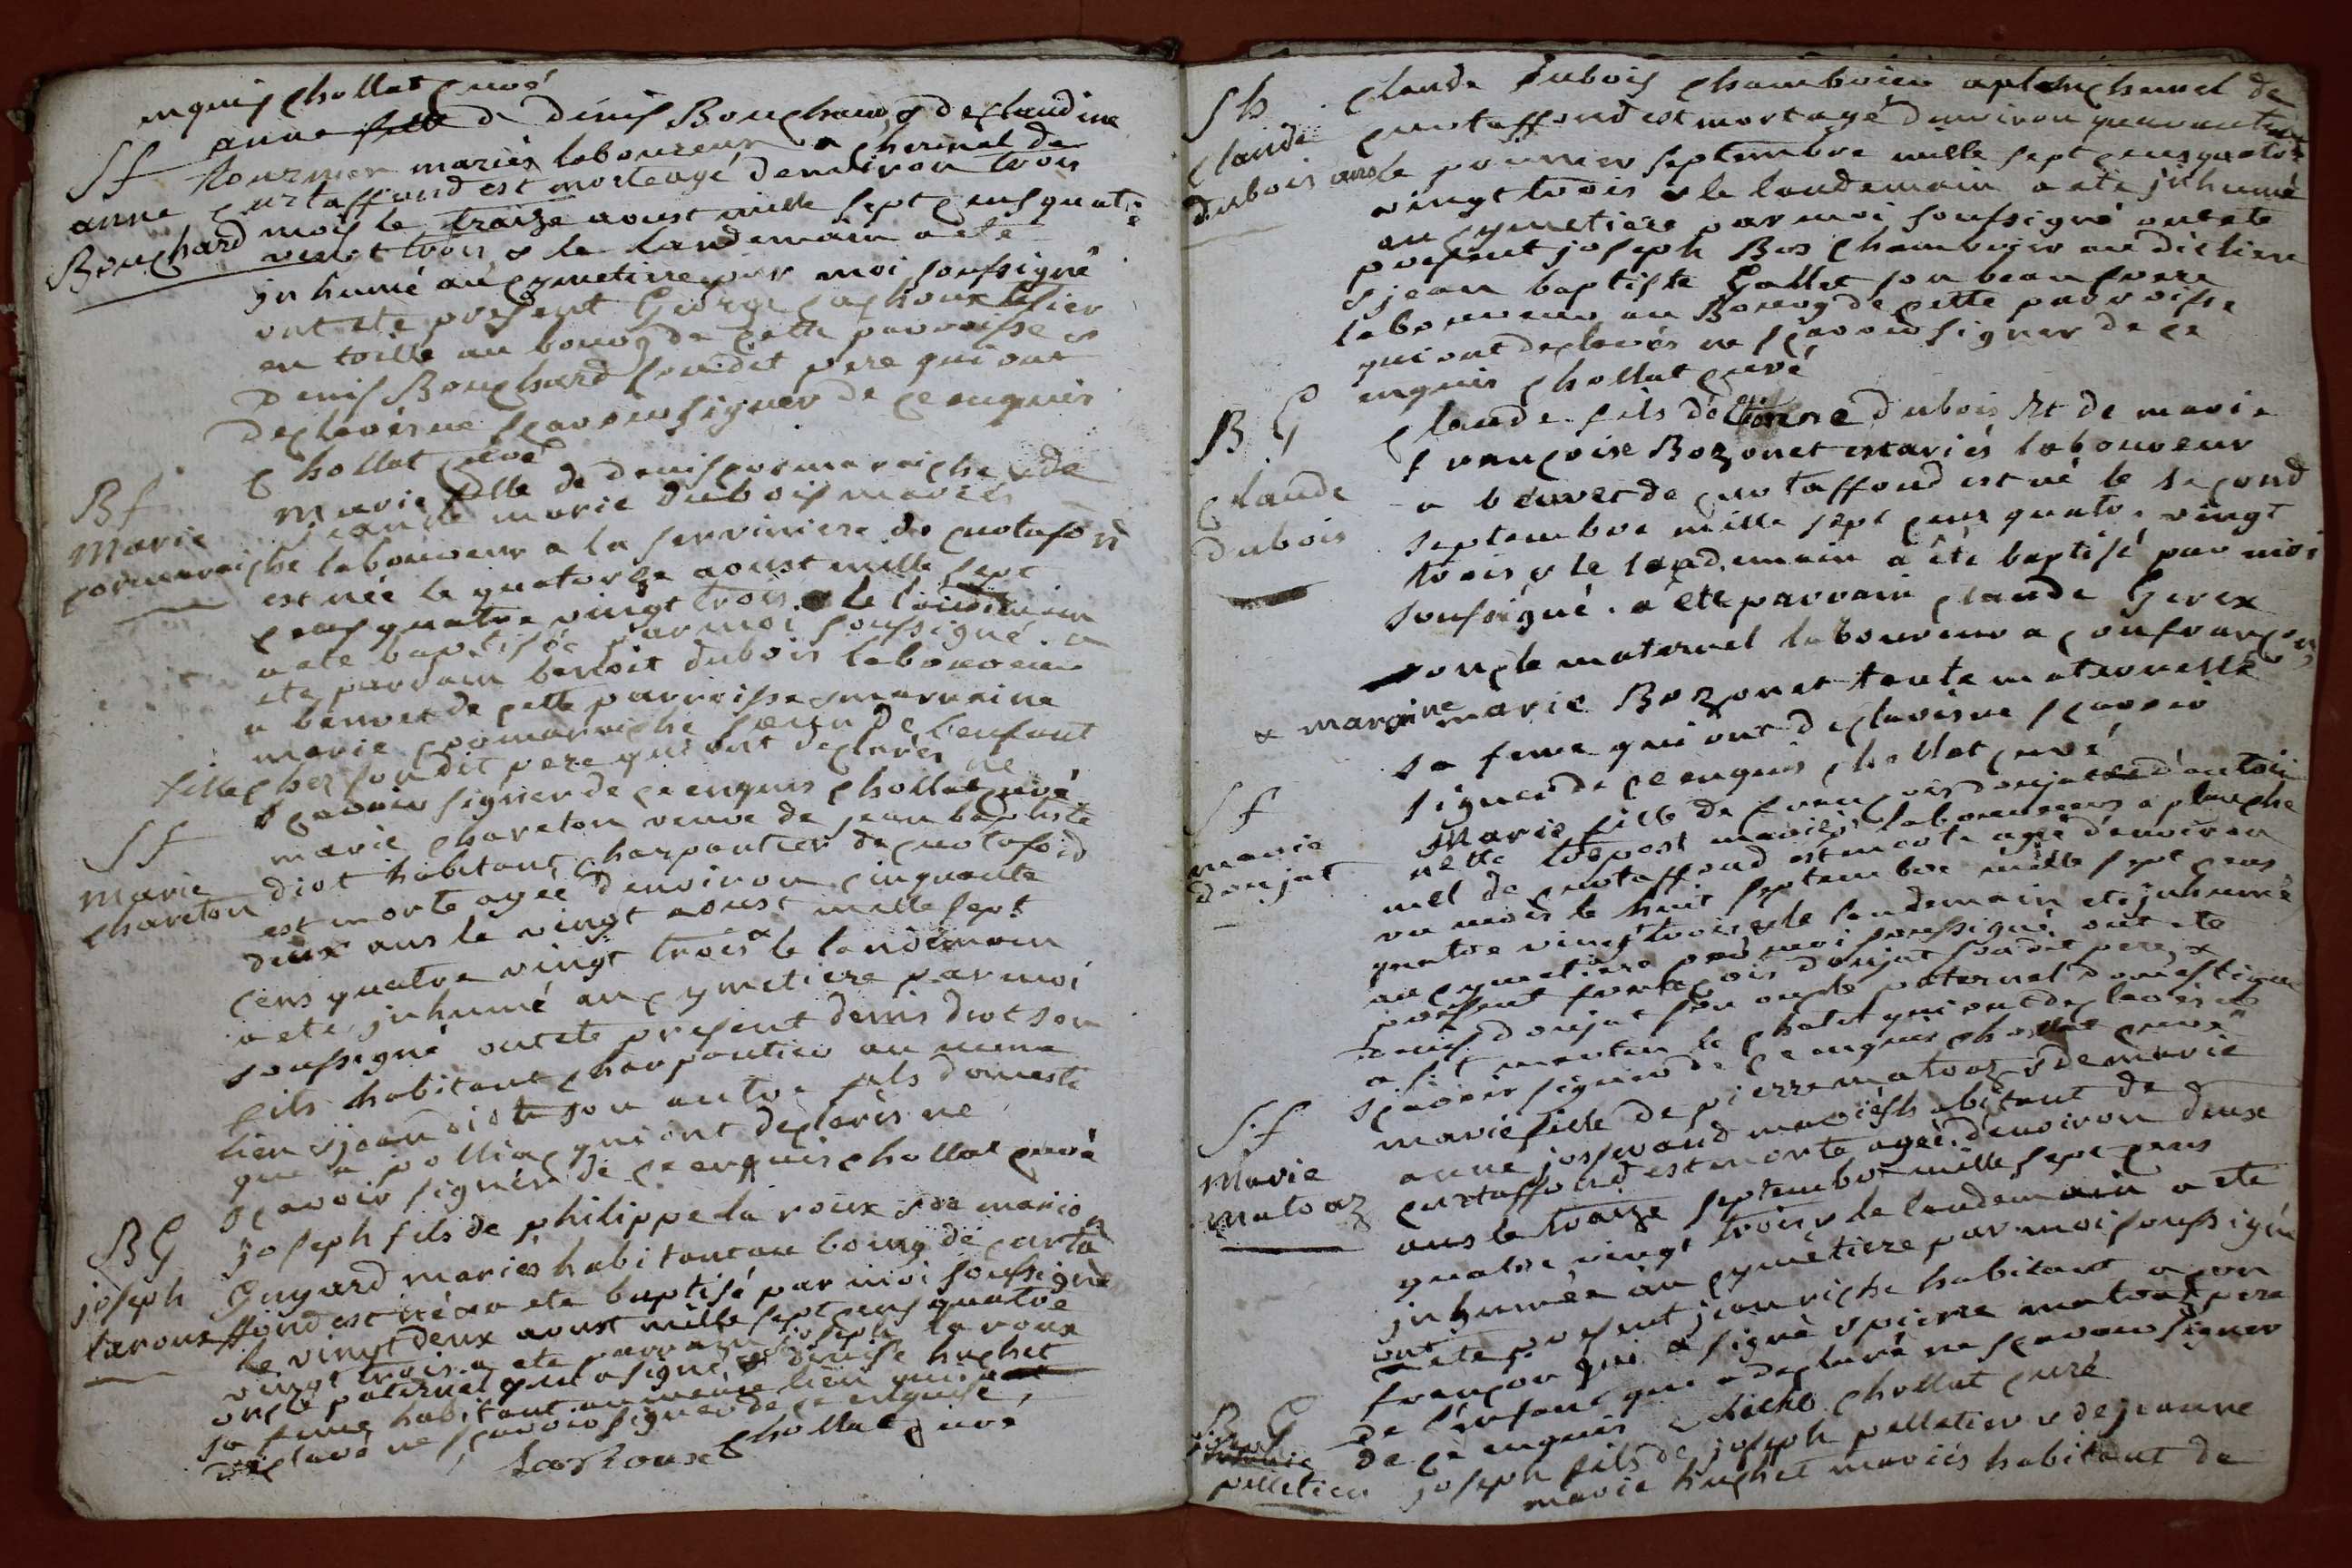 enquis chollat curé
Sf anne fille de denis Bouchard & de claudine
tournier mariés laboureur a cherinal de
anne curtaffond est morte agé denviron trois
Bouchard mois le traize aoust mille sept cens quatre
vint trois & le landemain a été
inhumé au cymetiere par moi soussigné
ont ete present George cachoux tissier
en toille au bourg de cette parroisse &
Denis Bouchard soudit pere qui ont
declarés ne scavoir signer de ce enquis
chollat curé
Bf marie fille de denis cormareiche & de
Marie jeanne marie Dubois mariés
cormareiche laboureur a la serviniere de curtafond
est née le quatorze aoust mille sept
cens quatre vingt trois & le landemain
a ete baptisée par moi soussigné. a
ete parrain benoit dubois laboureur
a benvet de cette parroisse & marraine
marie cormareiche soeur de l'enfant
fille chez soudit pere qui ont declarés ne
scavoir signer de ce enquis chollat curé
Sf marie chareton veuve de jean baptiste
Marie diot habitant charpantier de curtafond
chareton est morte agée denviron cinquante
deux ans le vingt aoust mille sept
cens quatre vingt trois & le landemain
a ete inhumé au cymetiere par moi
soussigné ont ete present denis diot son
fils habitant charpantier au meme
lieu & jean diot son autre fils domesti
que a polliac qui ont declarés ne
scavoir signer de ce enquis chollat curé
BG joseph fils de philippe la roux & de marie
joseph Guyard mariés habitant au bourg de curta
laroux ffond est né & a ete baptisé par moi soussigné
le vingt deux aoust mille sept cens quatre
vingt trois. a ete parrain joseph la roux
oncle paternel qui a signé & denise huchet
sa femme habitant au meme lieu qui a
declaré ne scavoir signer de ce enquise,
LarRoux chollat curé
Sh claude Dubois chamboier a planchemel de
claude curtaffond est mort agé denviron quarante
dubois ans le premier septembre mille sept cens quatre
vingt trois & le landemain a ete inhumé
au cymetiere par moi soussigné ont ete
present joseph Bos chamboier au dit lieu
& jean baptiste Gallet son beau frere
laboureur au Bourg de cette parroisse
qui ont declarés ne scavoir signer de ce
enquis chollat curé
B.G claude fils de etienne dubois et de marie
francoise Bozonet mariés laboureur
claude a benvet de curtaffond est né le second
dubois septembre mille sept cens quatre vingt
trois & le landemain a été baptisé par moi
soussigné. a ete parrain claude Gerex
oncle maternel laboureur a confrancon
& marraine marie Bozonet tante maternelle
sa feme qui ont declarés ne scavoir
signer de ce enquis chollat curé
Sf Marie fille de francois donjat & d'antoi
marie nette mariés laboureurs a planche
donjat mel de curtaffond est morte agé d'environ
un mois le huit septembre mille sept cens
quatre vingt trois & le landemain ete inhumé
au cymetiere par moi soussigné ont ete
present francois donjat soudit pere &
denis donjat son oncle paternel domestique
a st martin le chatel qui ont declarés ne
scavoir signer de ce enquis chollat curé
S.f marie fille de pierre matraz & de marie
anne josserand mariés habitant de
Marie curtaffond est morte agée d'environ deux
matraz ans le traize septembre mille sept cens
quatre vingt trois & le landemain a ete
inhumée au cymetiere par moi soussigné
ont ete present jean riche habitant a con
francon qui a signé & pierre matraz pere
de l'enfant qui a declaré ne scavoir signer
de ce enquis riche chollat curé
BG joseph fils de joseph pelletier & de jeanne
joseph
pelletier marie huchet mariés habitant de